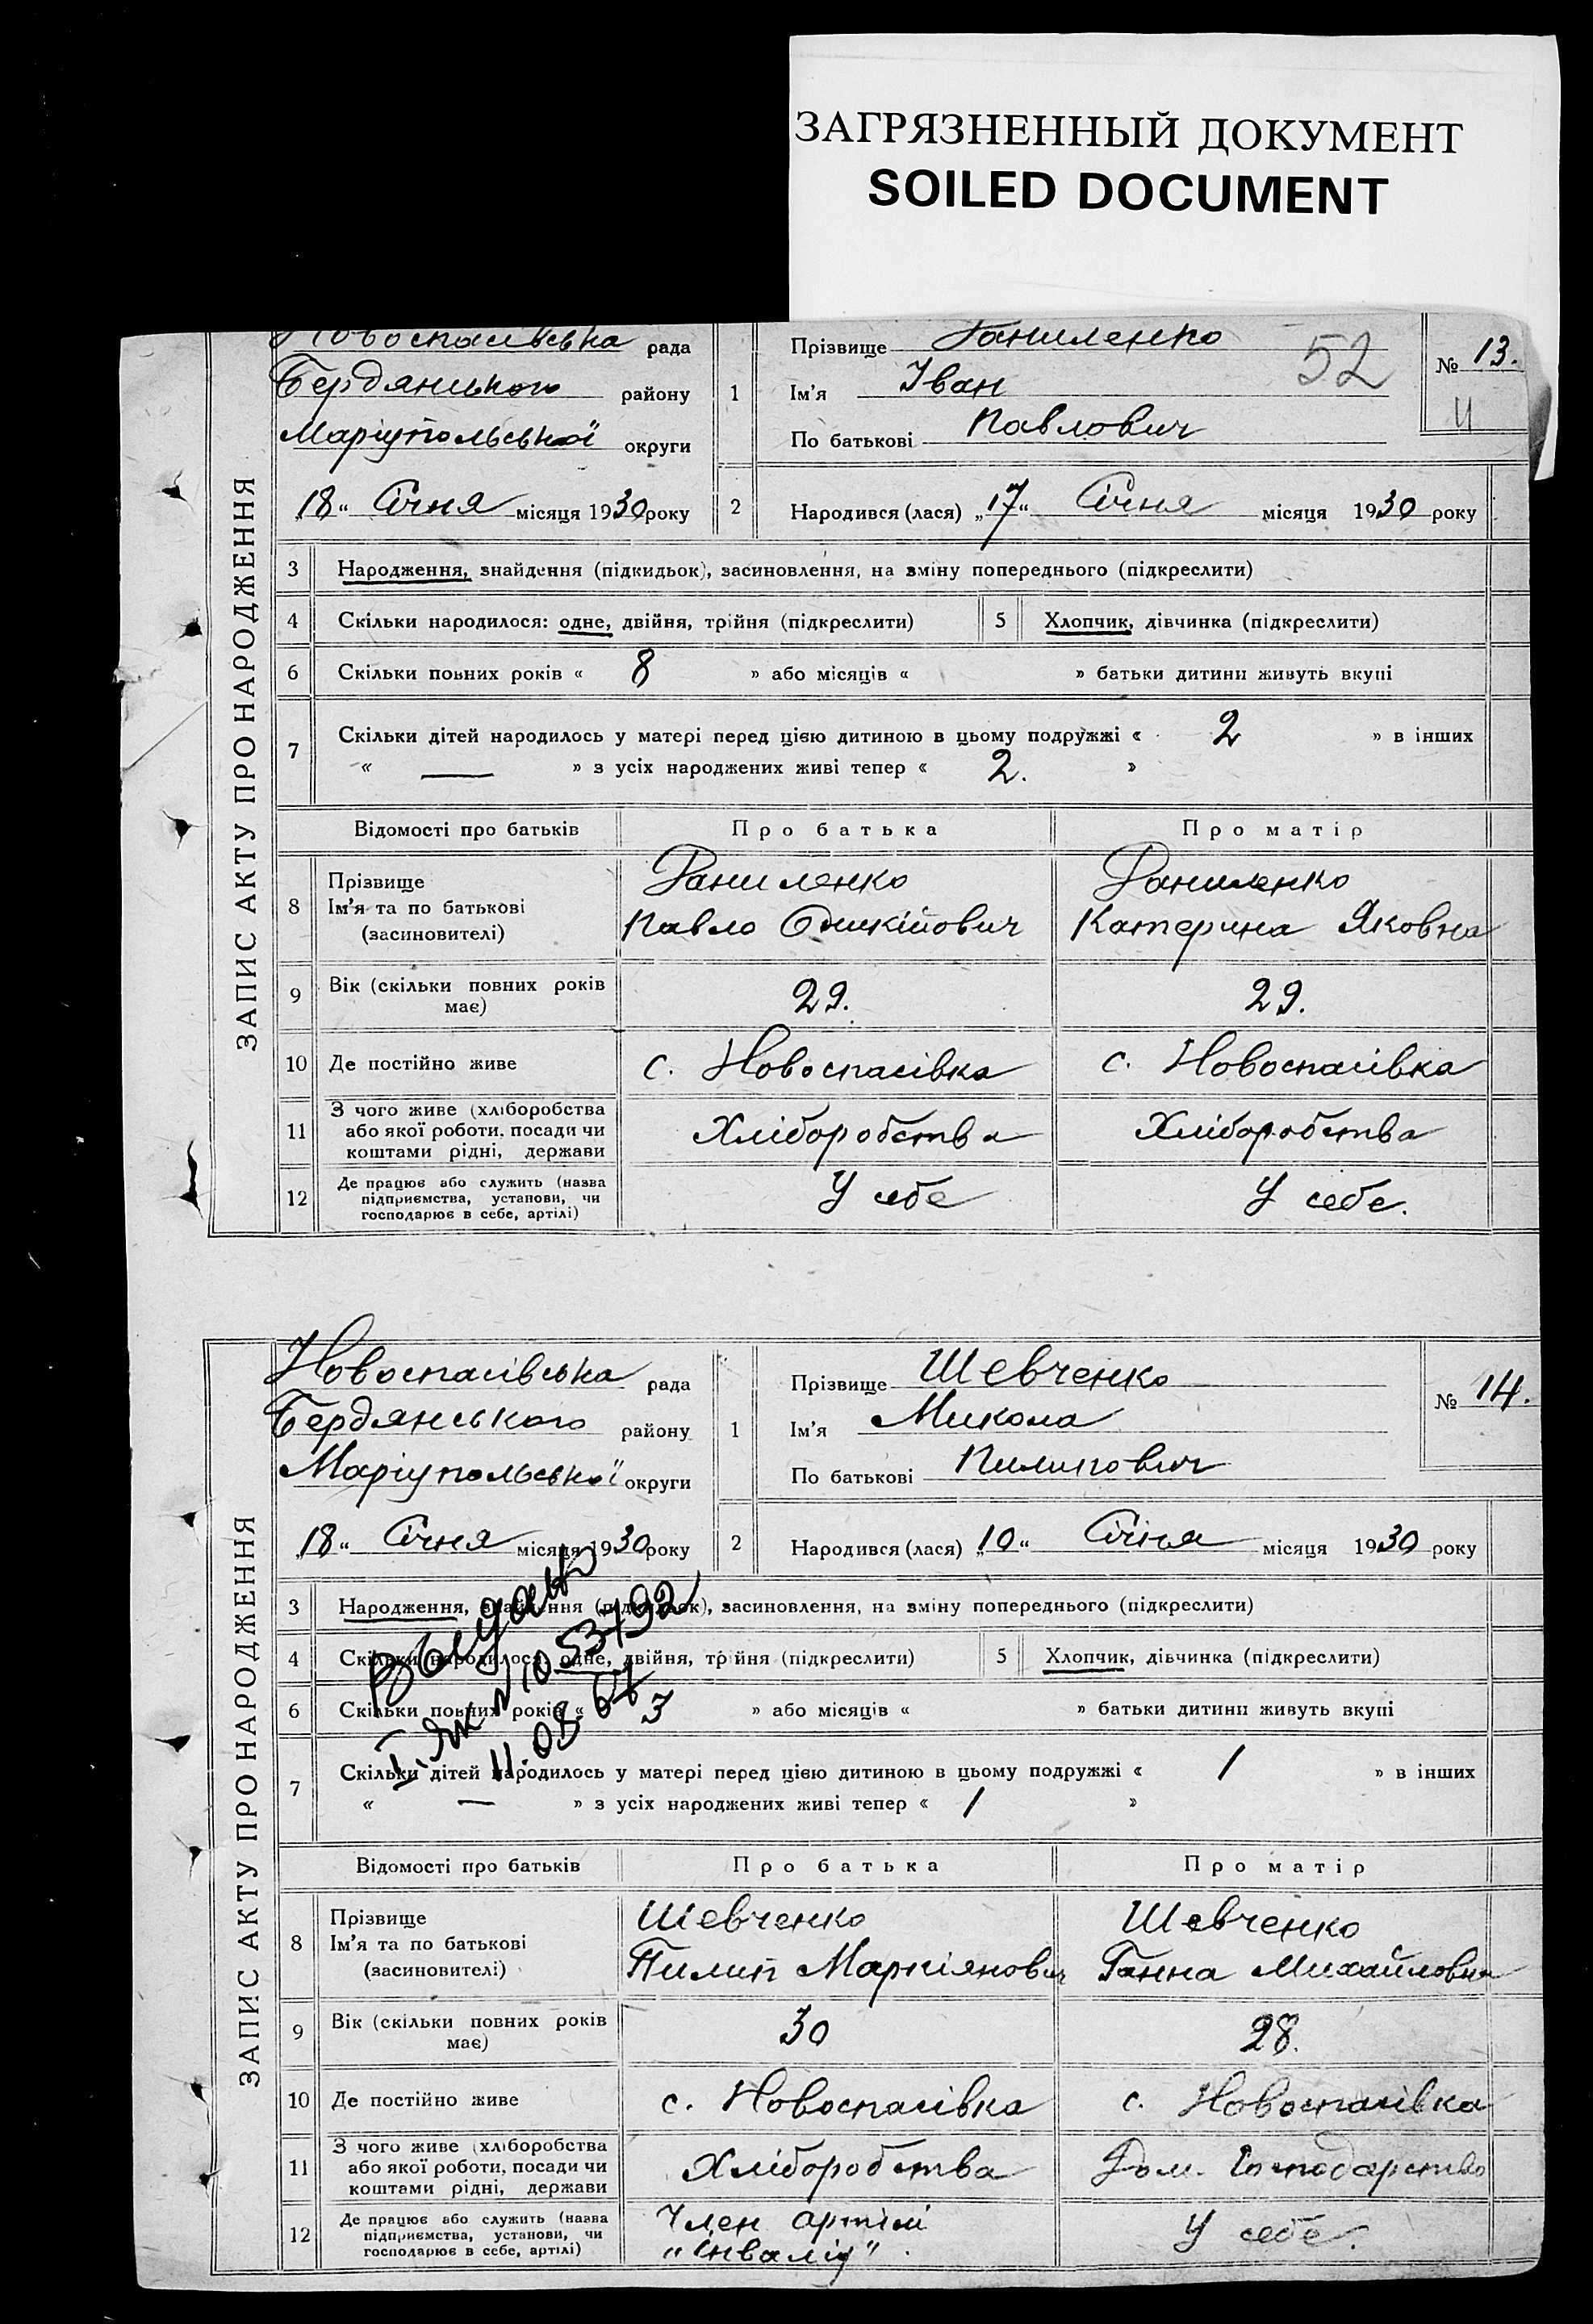 ЗАГРЯЗНЕННЫЙ ДОКУМЕНТ
SOILED DOCUMENT
ЗАПИС АКТУ ПРО НАРОДЖЕННЯ
Новоспасівська рада
Бердянського району
Маріупольської округи
„18“ Січня місяця 1930 року
1 Прізвище Даниленко
52
Ім'я Іван
По батькові Павлович
№ 13.
2 Народився (лася) „17“ Січня місяця 1930 року
3 Народження, знайдення (підкидьок), засиновлення, на зміну попереднього (підкреслити)
4 Скільки народилося: одне, двійня, трійня (підкреслити) 5 Хлопчик, дівчинка (підкреслити)
6 Скільки повних років « 8 » або місяців « » батьки дитини живуть вкупі
7 Скільки дітей народилось у матері перед цією дитиною в цьому подружжі « 2 » в інших
« — » з усіх народжених живі тепер « 2. »
Відомості про батьків Про батька Про матір
8 Прізвище Даниленко Даниленко
Ім'я та по батькові Павло Катерина Яковна
(засиновителі)
9 Вік (скільки повних років має) 29. 29.
10 Де постійно живе с. Новоспасівка с. Новоспасівка
11 З чого живе (хліборобства
або якої роботи, посади чи Хліборобства Хліборобства
коштами рідні, держави
12 Де працює або служить (назва
підприємства, установи, чи У себе У себе.
господарює в себе, артілі)
ЗАПИС АКТУ ПРО НАРОДЖЕННЯ
Новоспасівська рада
Бердянського району
Маріупольської округи
„18“ Січня місяця 1930 року
1 Прізвище Шевченко
Ім'я Микола
По батькові Пилипович
№ 14.
2 Народився (лася) „10“ Січня місяця 1930 року
3 Народження, знайдення (підкидьок), засиновлення, на зміну попереднього (підкреслити)
4 Скільки народилося: одне, двійня, трійня (підкреслити) 5 Хлопчик, дівчинка (підкреслити)
6 Скільки повних років « » або місяців « » батьки дитини живуть вкупі
Выдано
11.08
7 Скільки дітей народилось у матері перед цією дитиною в цьому подружжі « 1 » в інших
« — » з усіх народжених живі тепер « 1 »
Відомості про батьків Про батька Про матір
8 Прізвище Шевченко Шевченко
Ім'я та по батькові Пилип Маркіянович Ганна Михайловна
(засиновителі)
9 Вік (скільки повних років має) 30 28.
10 Де постійно живе с. Новоспасівка с. Новоспасівка
11 З чого живе (хліборобства
або якої роботи, посади чи Хліборобства Дом. Господарство
коштами рідні, держави
12 Де працює або служить (назва Член артілі
підприємства, установи, чи „Інвалід“ У себе.
господарює в себе, артілі)